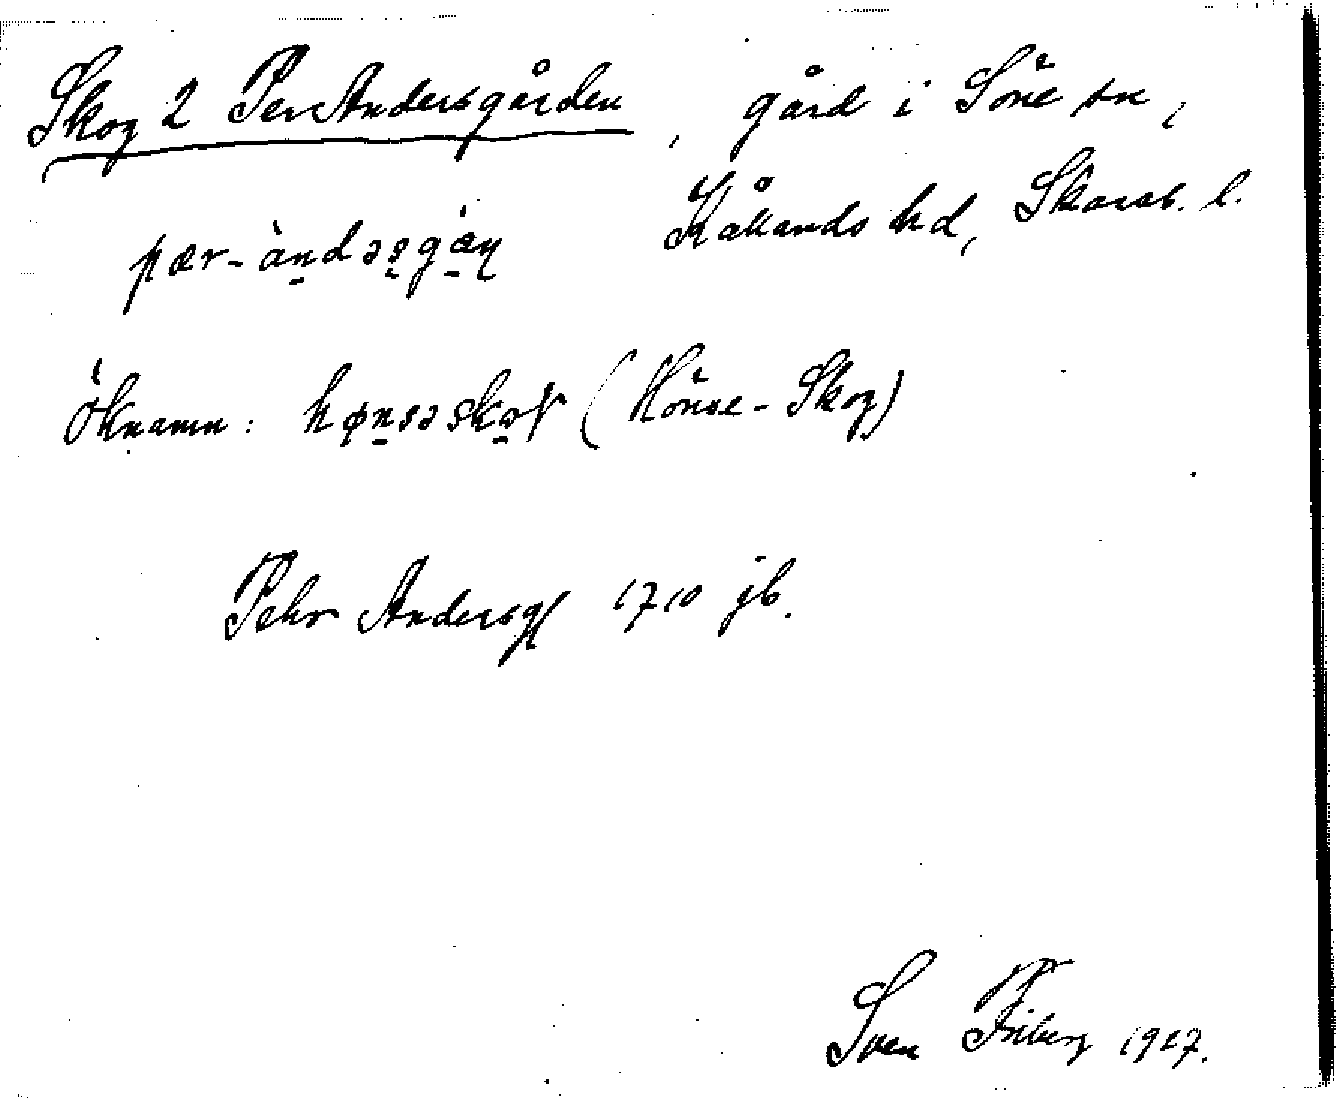 Skog 2 PerAndersgården, gård i Söne sn,
Kållands hd, Skarab. l.
pær-àndəs̠gàn̠
Öknamn: hønsəskoγ (Hönse-Skog)
Pehr Andersg 1710 jb.
Sven Friberg 1927.